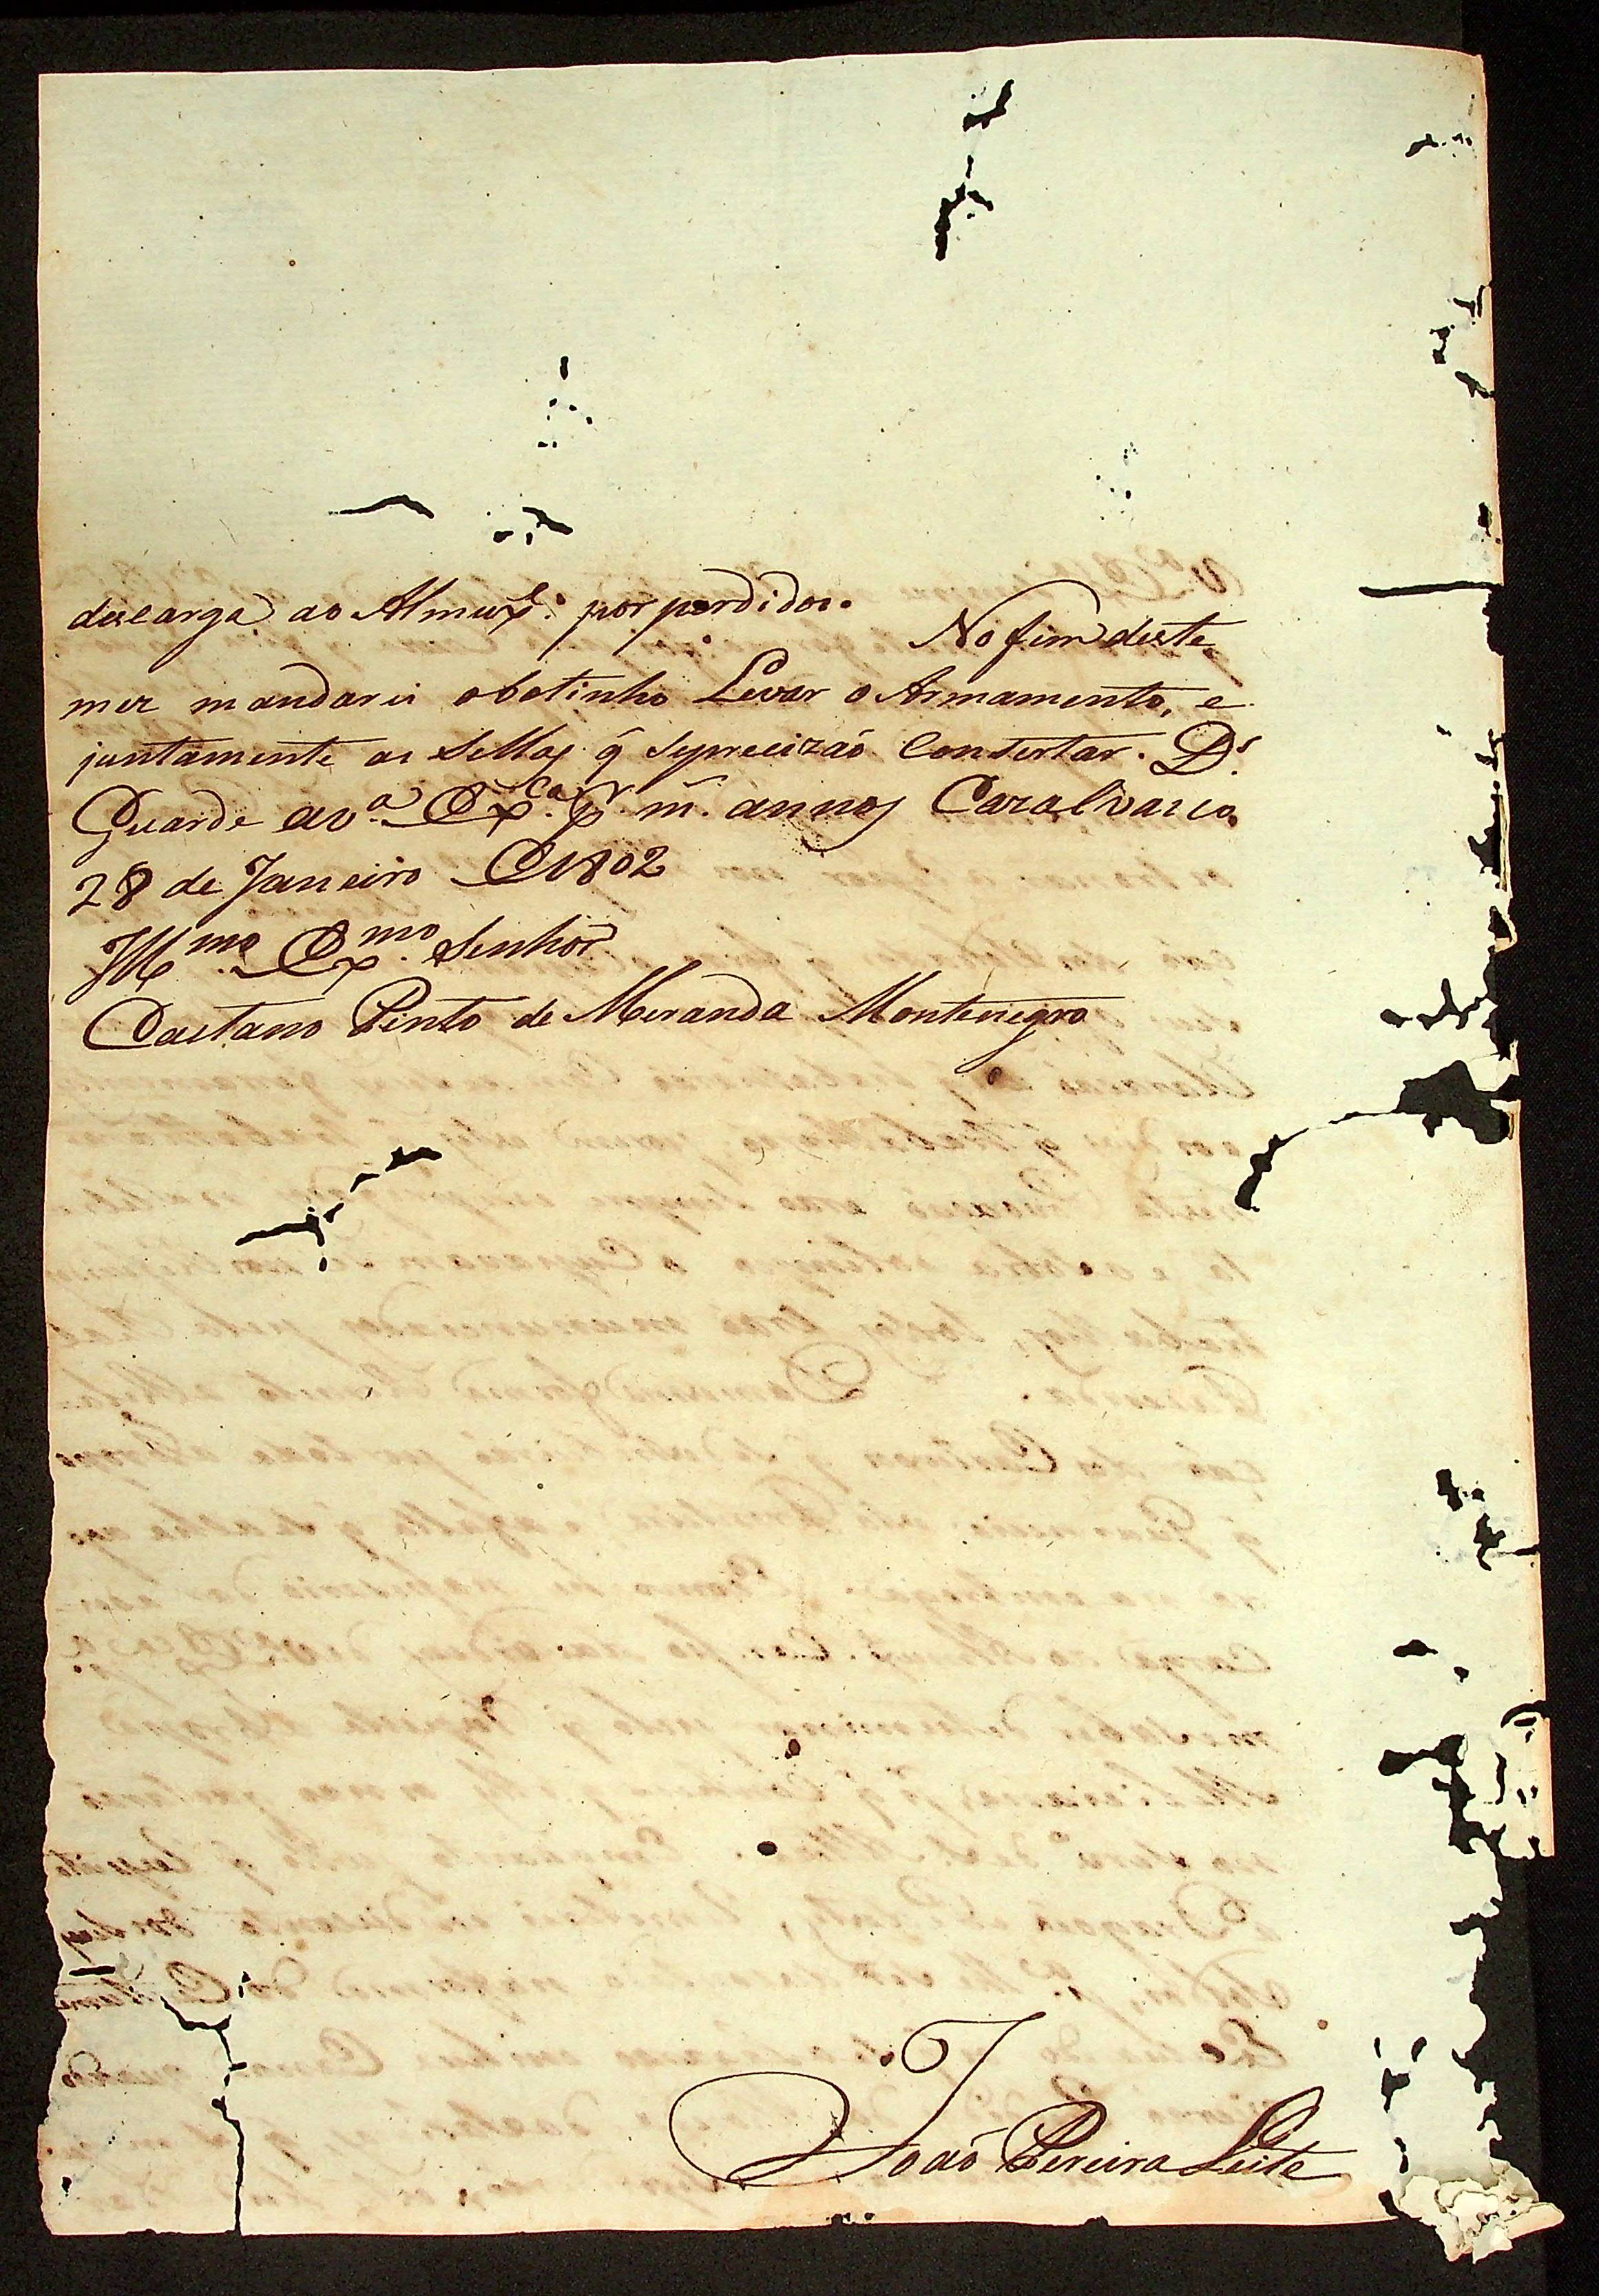 descarga ao Almux.e por perdidos.
No fim deste
mez mandarei obotinho Levar o Armamento, e
juntamente as Sellas q̃ seprecizaõ Consertar. D.s
Guarde av.a Ex.ca p.r m.s annos Cazalvasco
28 de Janeiro D1802
Ill.mo Ex.mo Senhor
Caetano Pinto de Miranda Montenegro
Joaõ Pereira Leite